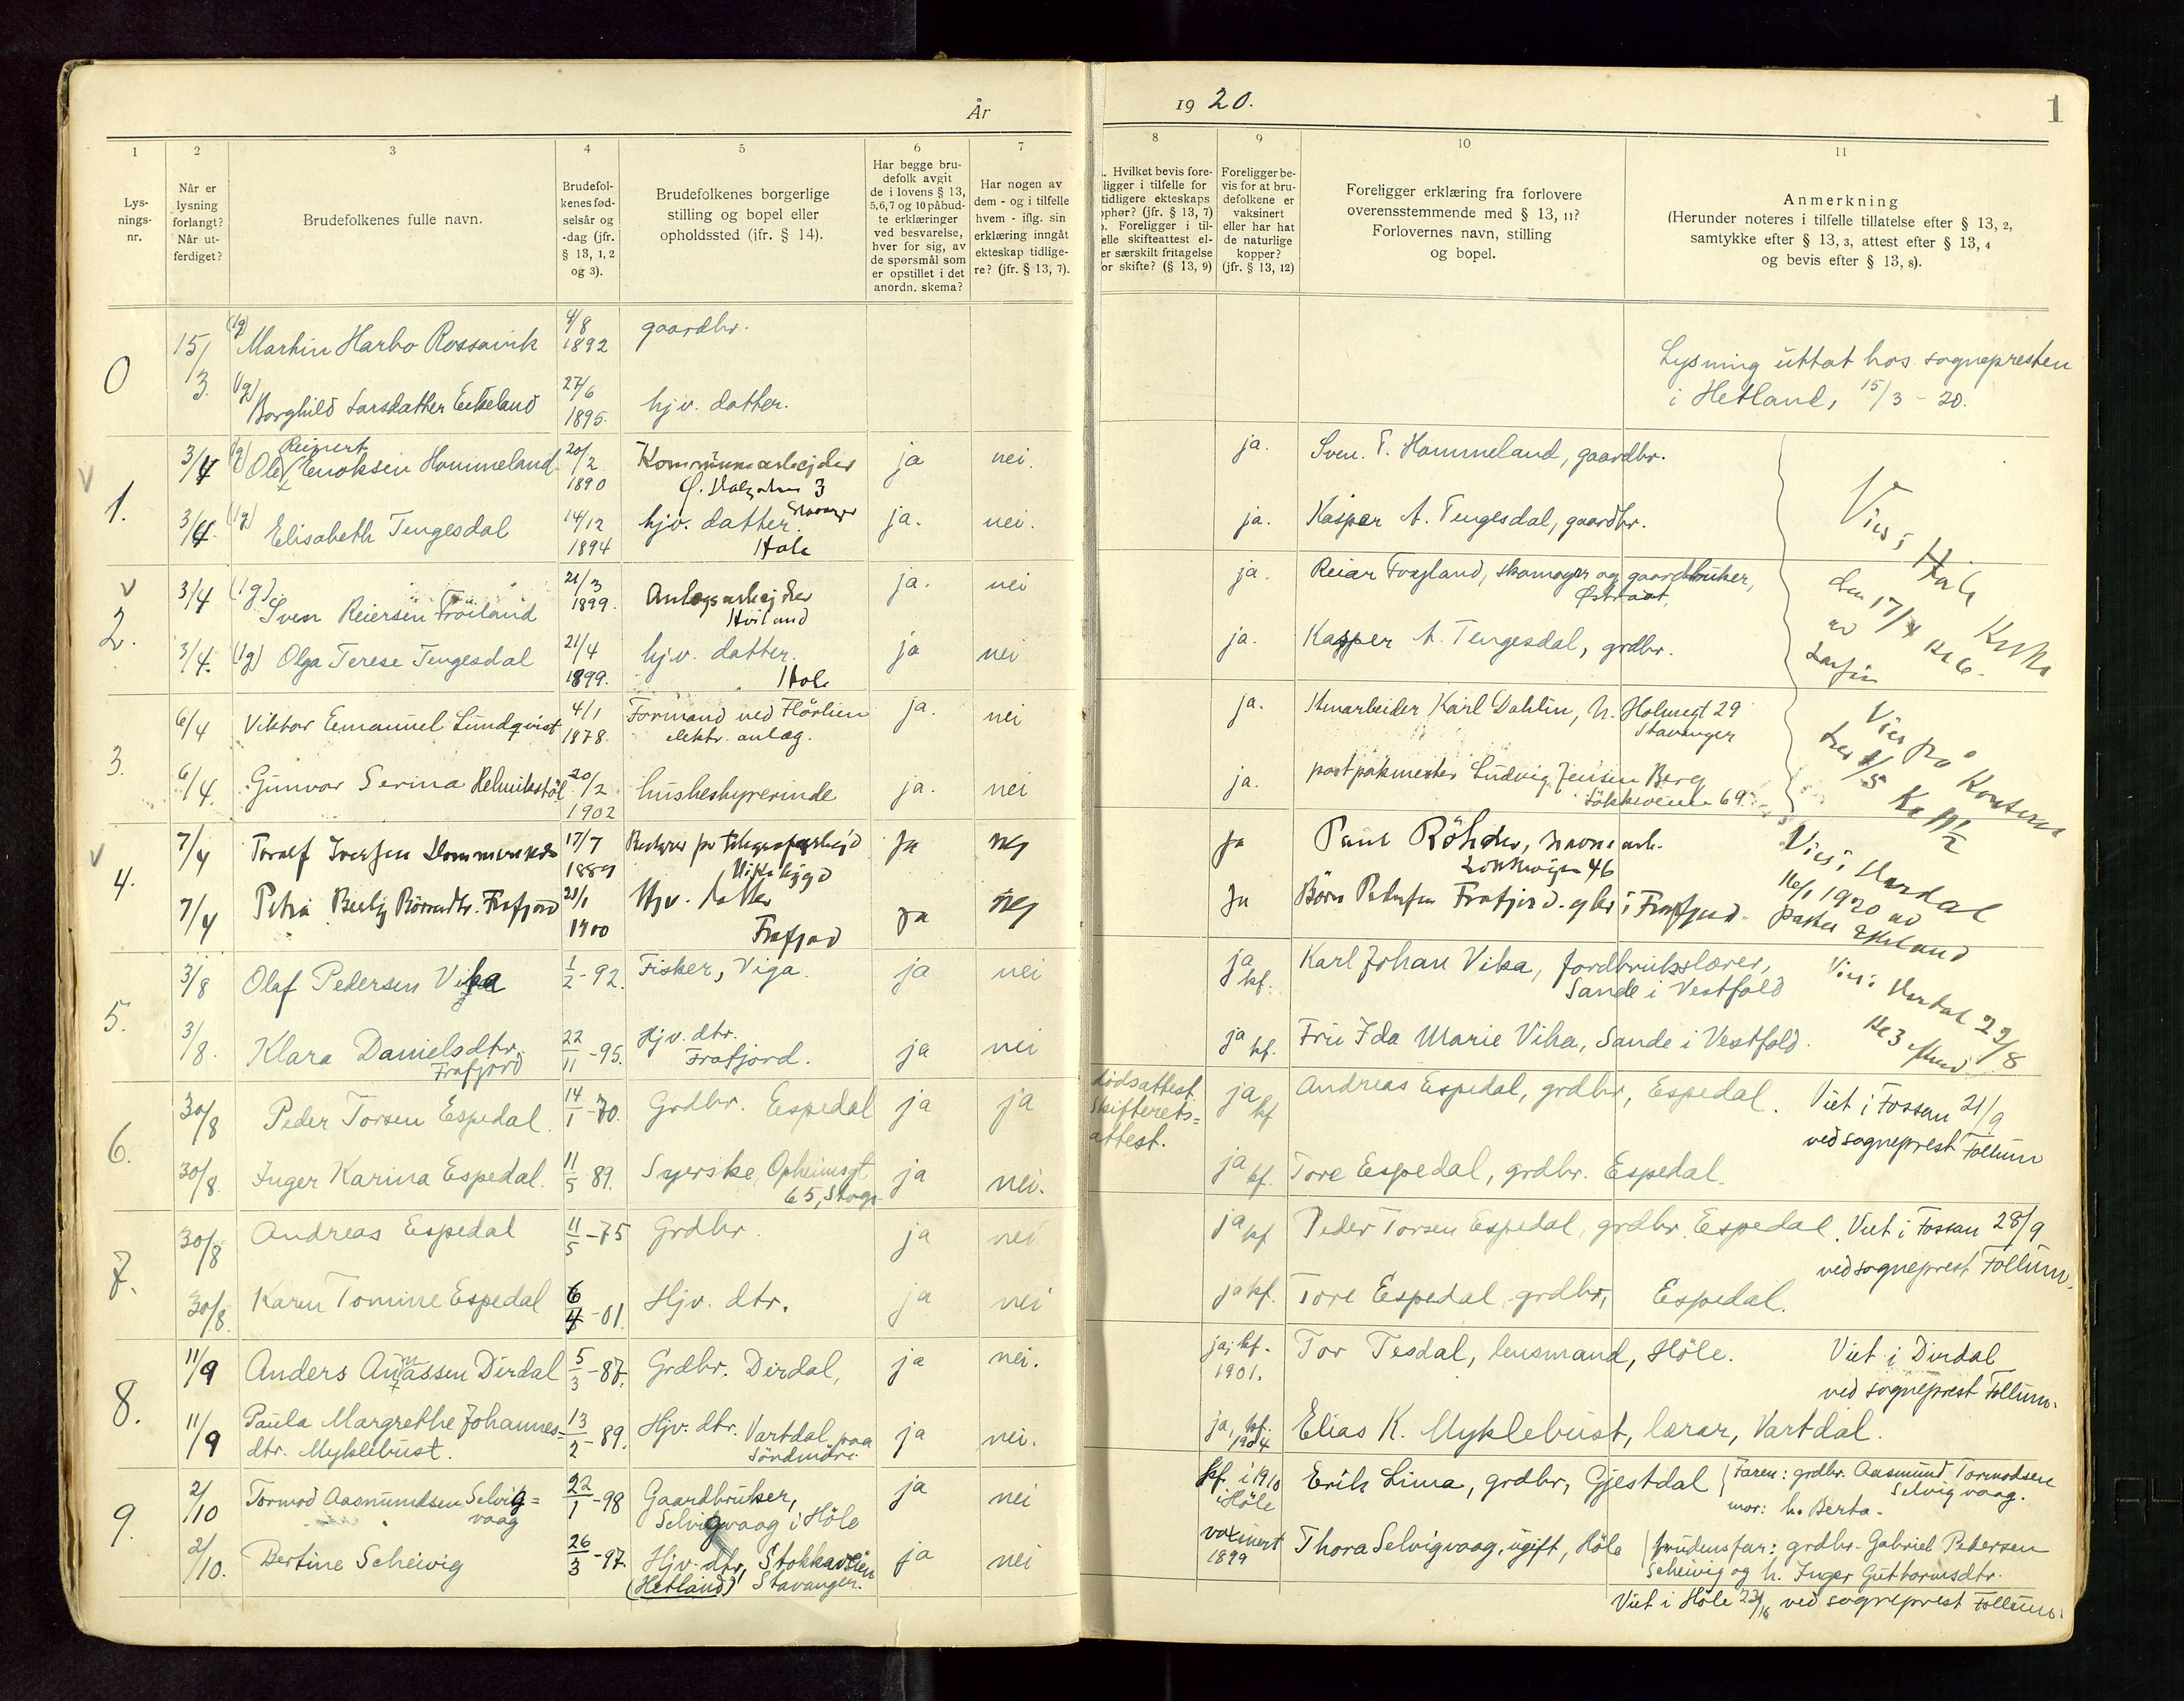 År 1920.
1
1 2 3 4 5 6 7 8 9 10 11
Lys-
nings-
nr.
Når er
lysning
forlangt?
Når ut-
ferdiget?
Brudefolkenes fulle navn.
Brudefol-
kenes fød-
selsår og
-dag (jfr.
§ 13, 1, 2
og 3).
Brudefolkenes borgerlige
stilling og bopel eller
opholdssted (jfr. § 14).
Har begge bru-
defolk avgit
de i lovens § 13,
5, 6, 7 og 10 påbud-
te erklæringer
ved besvarelse,
hver for sig, av
de spørsmål som
er opstillet i det
anordn. skema?
Har nogen av
dem - og i tilfelle
hvem - iflg. sin
erklæring inngåt
ekteskap tidlige-
re? (jfr. § 13, 7).
. Hvilket bevis fore-
ligger i tilfelle for
tidligere ekteskaps
ophør? (jfr. § 13, 7)
. Foreligger i til-
elle skifteattest el-
er særskilt fritagelse
or skifte? (§ 13, 9)
Foreligger be-
vis for at bru-
defolkene er
vaksinert
eller har hat
de naturlige
kopper?
(jfr. § 13, 12)
Foreligger erklæring fra forlovere
overensstemmende med § 13, 11?
Forlovernes navn, stilling
og bopel.
Anmerkning
(Herunder noteres i tilfelle tillatelse efter § 13, 2,
samtykke efter § 13, 3, attest efter § 13, 4
og bevis efter § 13, 8).
0 15/3. (1g) Martin Harbo Rossavik 4/8 1892 gaardbr.
(1g) Borghild Larsdatter Eikeland 27/6 1895. hjv. datter.
Lysning uttat hos sognepresten
i Hetland, 15/3 - 20.
1. 3/4 (1g) Ole Reinert Enoksen Hommeland 20/2 1890 Kommunearbejder 3 Stavanger ja nei. ja. Sven T. Hommeland, gaardbr.
3/4 (1g) Elisabeth Tengesdal 14/12 1894 hjv. datter. Hole ja. nei. ja. Kasper A. Tengesdal, gaardbr.
2. 3/4 (1g) Sven Reiersen Fröiland 21/3 1899. Anlegsarbejder ja. nei ja. Reiar Frøyland, skomager og gaardbruker,
3/4. (1g) Olga Terese Tengesdal 21/4 1899. hjv. datter. Hole ja nei ja. Kasper A. Tengesdal, grdbr.
Viet i Hole Kirke
den 17/4 kl 6.
3. 6/4 Viktor Emanuel Lundqvist 4/1 1878. Formand ved Flörlien
elektr. anlæg. ja. nei ja. Stenarbeider Karl Dahlin, N. Holmegt 29
Stavanger
6/4. Gunvor Serina Helmikstöl 20/2 1902 husbestyrerinde ja. nei ja. postpakmester Ludvig Jensen Berg
Løkkeveien 69.
Viet på Kontoret
4. 7/4 Toralf Iversen 17/7 1889 ja nej ja Paul
Løkkeveien 46
7/4 Petra Berly Börresdtr. Frafjord 28/1 1900 Hjv. datter
Frafjord ja nej ja Börre Pedersen Frafjord. gbr i Frafjord.
5. 3/8 Olaf Pedersen Vika 1/2 - 92. Fisker, Viga. ja nei ja kf. Karl Johan Vika, jordbrukslærer,
Sande i Vestfold
3/8. Klara Danielsdtr.
Frafjord 22/11 - 95. Hjv. dtr.
Frafjord. ja nei ja kf. Fru Ida Marie Vika, Sande i Vestfold.
6. 30/8 Peder Torsen Espedal. 14/1 - 70. Grdbr. Espedal ja ja dödsattest.
Skifterets=
attest. ja kf Andreas Espedal, grdbr, Espedal. Viet i Fossan 21/9
ved sogneprest Follum
30/8. Inger Karina Espedal. 11/5 89. Syerske, Opheimsgt
65, Stvgr. ja nei. ja kf. Tore Espedal, grdbr. Espedal.
7. 30/8 Andreas Espedal 11/5 - 75 Grdbr. ja nei ja kf Peder Torsen Espedal, grdbr. Espedal. Viet i Fossan 28/9
ved sogneprest Follum.
30/8. Karen Tomine Espedal 6/4 - 01. Hjv. dtr. ja nei ja kf. Tore Espedal, grdbr, Espedal.
8. 11/9 Anders Annassen Dirdal 5/3 - 87. Grdbr. Dirdal, ja nei. ja, kf. 1901. Tor Tesdal, lensmand, Höle. Viet i Dirdal
ved sogneprest Follum.
11/9 Paula Margrethe Johannes=
dtr. Myklebust. 13/2 - 89. Hjv. dtr. Vartdal paa
Söndmöre ja nei. ja, kf. 1904 Elias K. Myklebust, lærar, Vartdal.
9. 2/10 Tormod Aasmundsen Selvig=
vaag 22/1 - 98 Gaardbruker,
Selvigvaag i Höle ja nei kf. i 1910
i Höle Erik Lima, grdbr, Gjestdal Faren: grdbr. Aasmund Tormodsen
Selvigvaag.
mor: h. Berta.
2/10. Bertine Scheivig 26/3 - 97. Hjv. dtr, Stokkaveien
(Hetland) Stavanger. ja nei vaksinert
1899 Thora Selvigvaag, ugift, Höle Brudens far: grdbr. Gabriel Pedersen
Scheivig og h. Inger Guttormsdtr.
Viet i Höle ved sogneprest Follum.